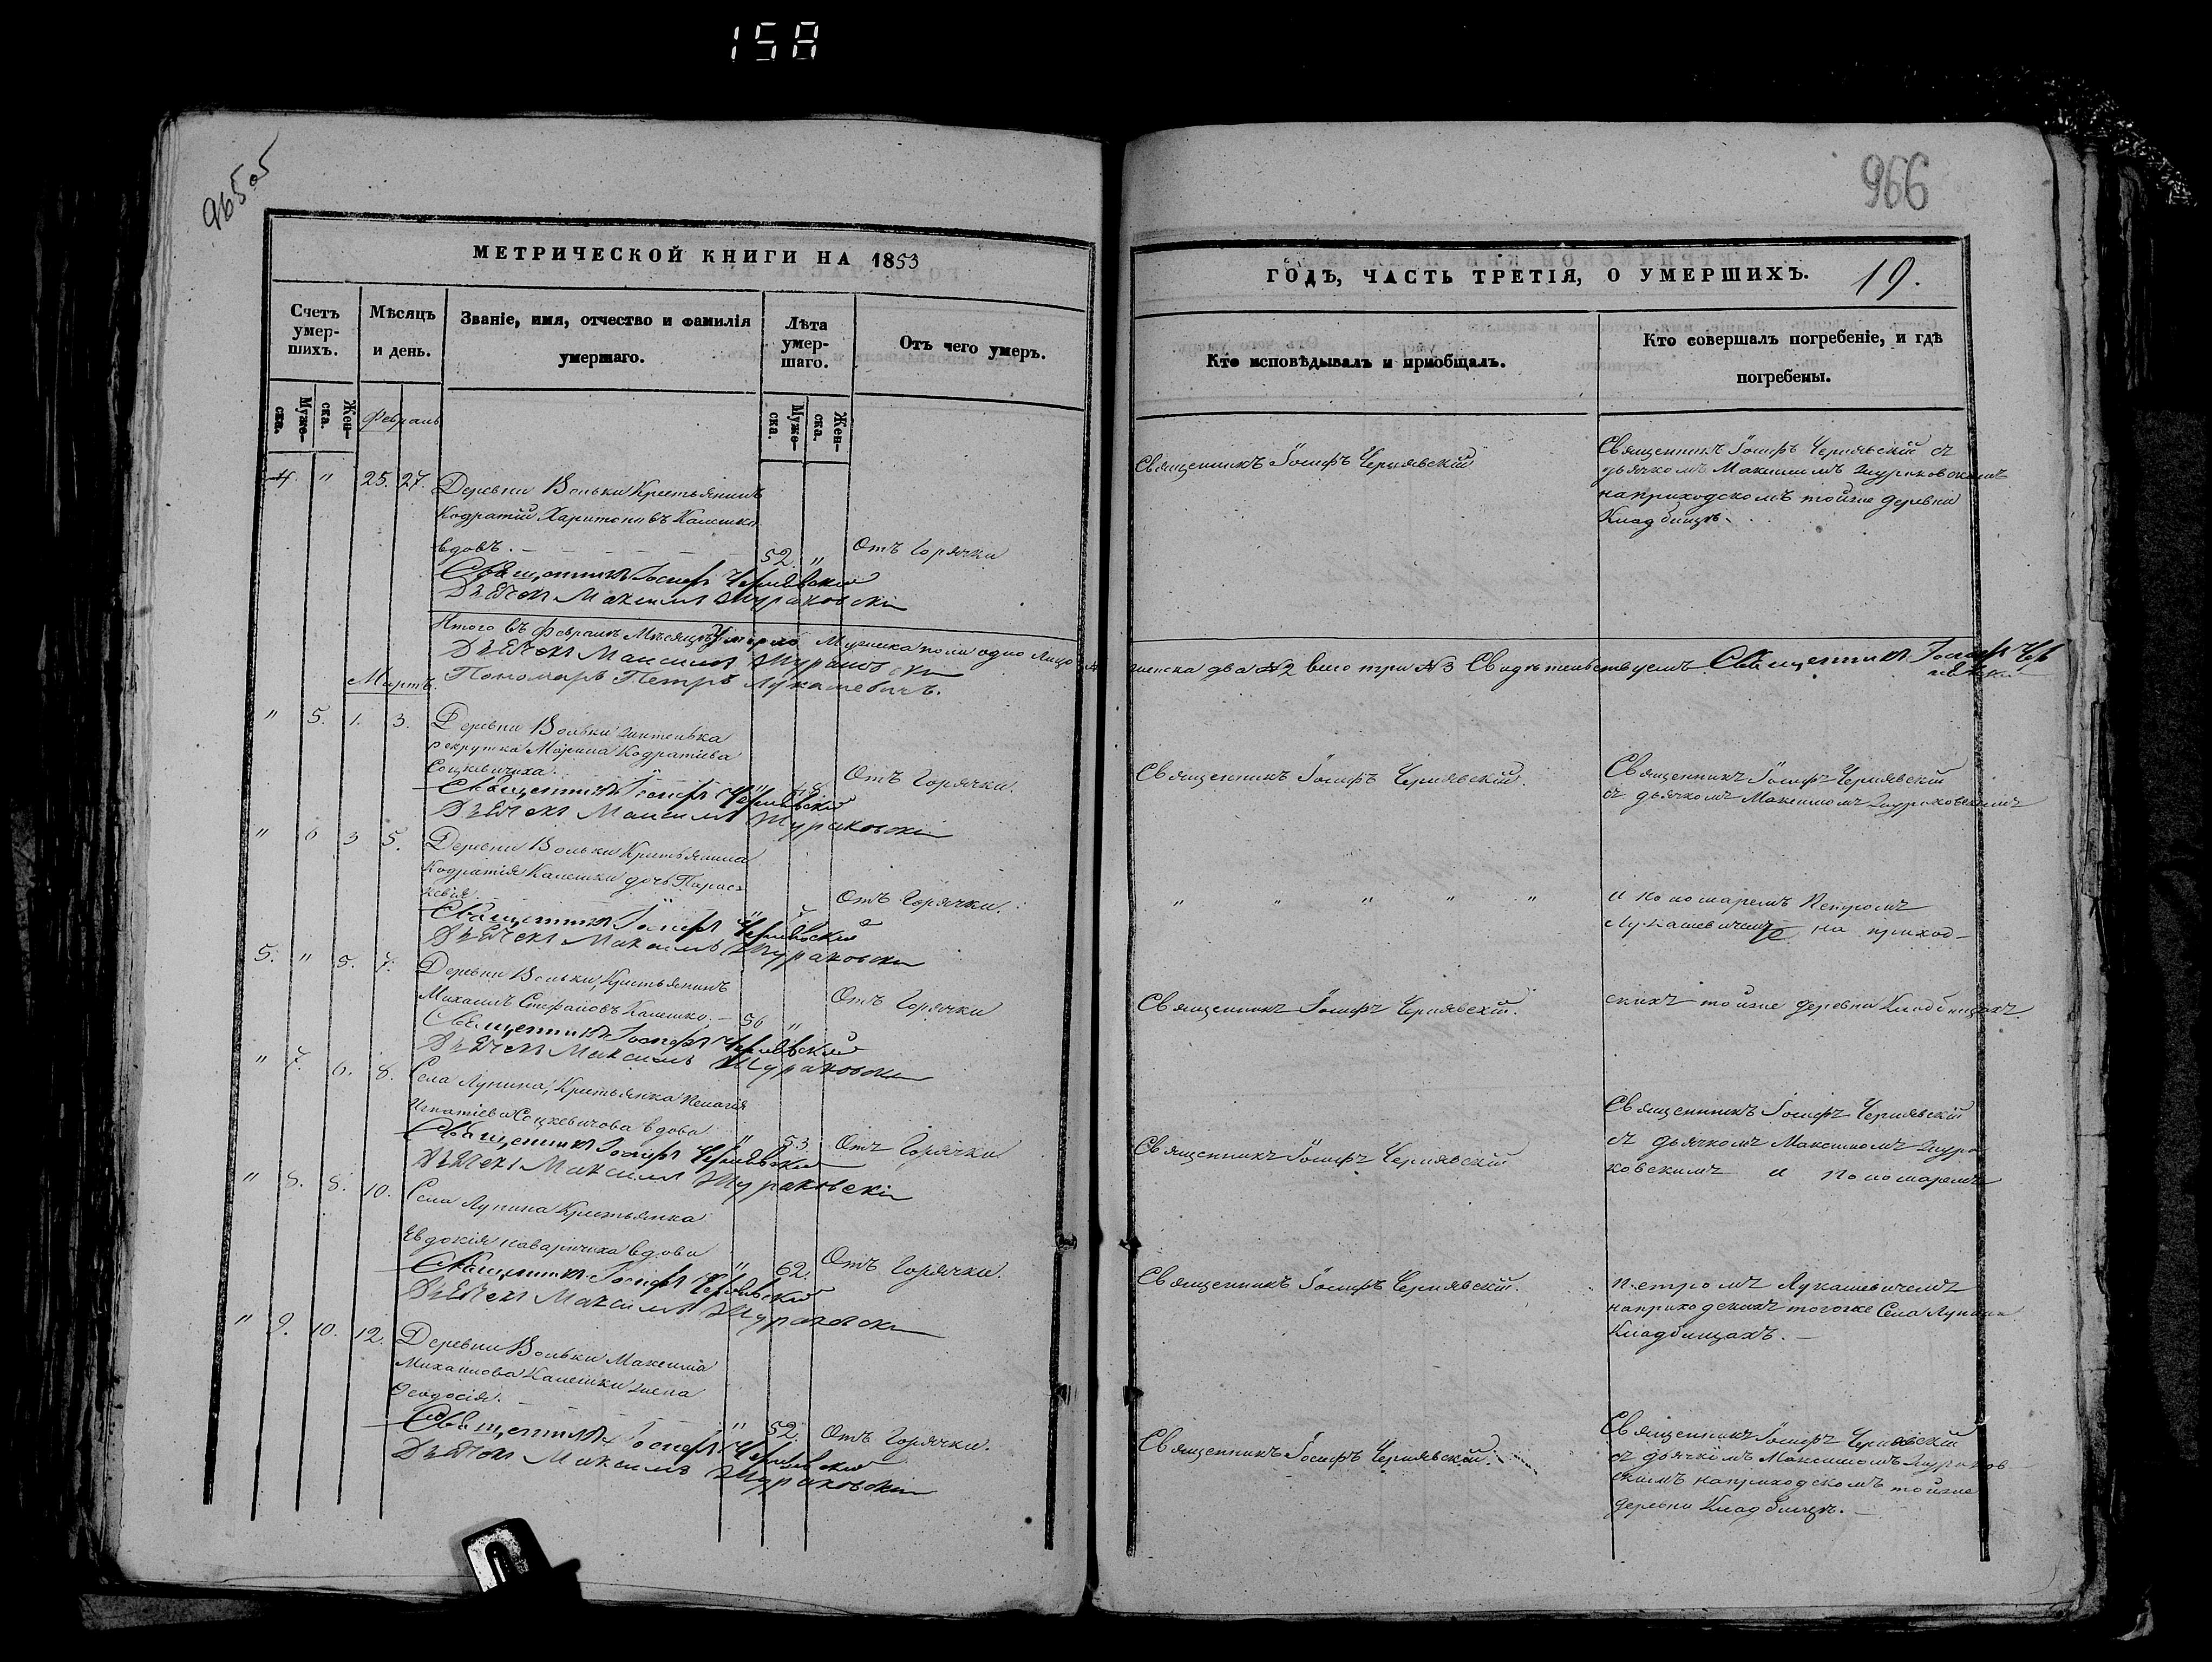 158
965 об
966
МЕТРИЧЕСКОЙ КНИГИ НА 1853
ГОДЪ, ЧАСТЬ ТРЕТІЯ, О УМЕРШИХЪ. 19.
Счетъ умер-шихъ.
Мѣсяцъ и день.
Званіе, имя, отчество и фамилія умершаго.
Лѣта умер-шаго.
Отъ чего умеръ.
Кто исповѣдывалъ и пріобщалъ.
Кто совершалъ погребеніе, и гдѣ погребены.
Муже-ска.
Жен-ска.
Муже-ска.
Жен-ска.
Февраль
4. " 25. 27. Деревни Вольки Крестьянинъ
Кодратій Харитоновъ Калешко
вдовъ. 52. " Отъ Горячки
Священникъ Іосифъ Чернявскій
Дьячекъ Максимъ Жураковскій
Священникъ Іосифъ Чернявскій
Священникъ Іосифъ Чернявскій съ
дьячкомъ Максимомъ Жураковскимъ
на приходскомъ тойже деревни
Кладбищѣ.
Итого въ Февралѣ Мѣсяцѣ Умерло Мужеска пола одно лицо
женска два №2 всего три №3 Свидѣтельствуемъ Священникъ Іосифъ Чернявскій
Дьячекъ Максимъ Жураковскій
Пономарь Петръ Лукашевичъ.
Мартъ.
" 5. 1. 3. Деревни Вольки жителька
рекрутка Марина Кодратіева
Соцкевичиха. " 48. Отъ Горячки.
Священникъ Іосифъ Чернявскій
Дьячекъ Максимъ Жураковскій
Священникъ Іосифъ Чернявскій.
Священникъ Іосифъ Чернявскій
съ дьячкомъ Максимомъ Жураковскимъ
" 6 3 5. Деревни Вольки Крестьянина
Кодратія Калешки дочь Парас-
кевія " Отъ Горячки.
Священникъ Іосифъ Чернявскій
Дьячекъ Максимъ Жураковскій
" " " " "
и пономаремъ Петромъ
Лукашевичемъ на приход-
5. " 5. 7. Деревни Вольки, Крестьянинъ
Михаилъ Стефановъ Калешко. 56 " Отъ Горячки
Священникъ Іосифъ Чернявскій
Дьячекъ Максимъ Жураковскій
Священникъ Іосифъ Чернявскій.
скихъ тойже деревни Кладбищахъ.
" 7. 6. 8. Села Лунина, Крестьянка Пелагія
Игнатіева Соцкевичова вдова " 53. Отъ Горячки
Священникъ Іосифъ Чернявскій
Дьячекъ Максимъ Жураковскій
Священникъ Іосифъ Чернявскій
Священникъ Іосифъ Чернявскій
съ дьячкомъ Максимомъ Жура-
ковскимъ и Пономаремъ
" 8. 8. 10. Села Лунина Крестьянка
Евдокія Наваричиха вдова " 62. Отъ Горячки.
Священникъ Іосифъ Чернявскій
Дьячекъ Максимъ Жураковскій
Священникъ Іосифъ Чернявскій.
Петромъ Лукашевичемъ
на приходскихъ тогоже Села Лунина
Кладбищахъ.
" 9. 10. 12. Деревни Вольки Максима
Михаилова Калешки жена
Феодосія. " 52. Отъ Горячки.
Священникъ Іосифъ Чернявскій
Дьячекъ Максимъ Жураковскій
Священникъ Іосифъ Чернявскій.
Священникъ Іосифъ Чернявскій
съ дьячкомъ Максимомъ Жураков-
скимъ на приходскомъ тойже
деревни Кладбищѣ.